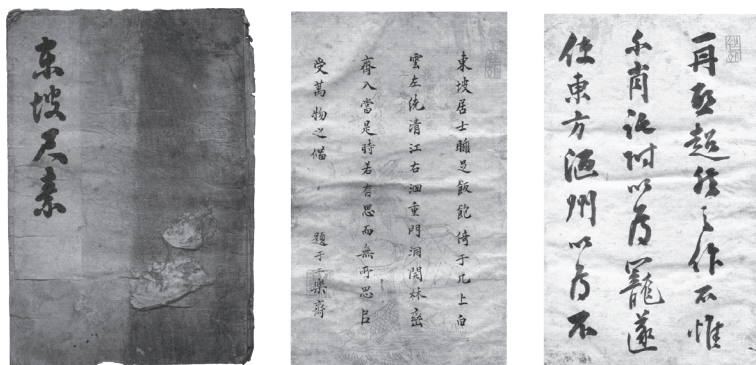 东坡尺素
東坡居士睡足飯飽倚于几上白
雲左绕清江右洄重門洞開林巒
齊入當是時若有思而無所思以
受萬物之備
題于樂齋
再啟超然之作不惟
不肖託附以為寵遂
使東方陋州以為不